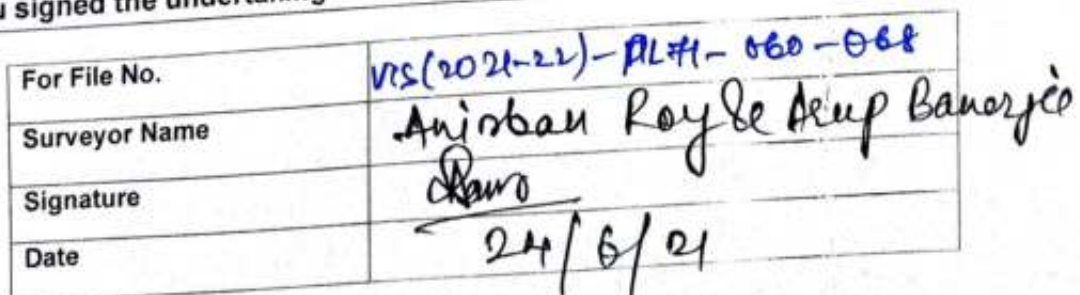 u signed the undertaking
For File No. VIS(2021-22)-PL#1-060-068
Surveyor Name Anirban Roy & Arup Banerjee
Signature
Date 24/6/21